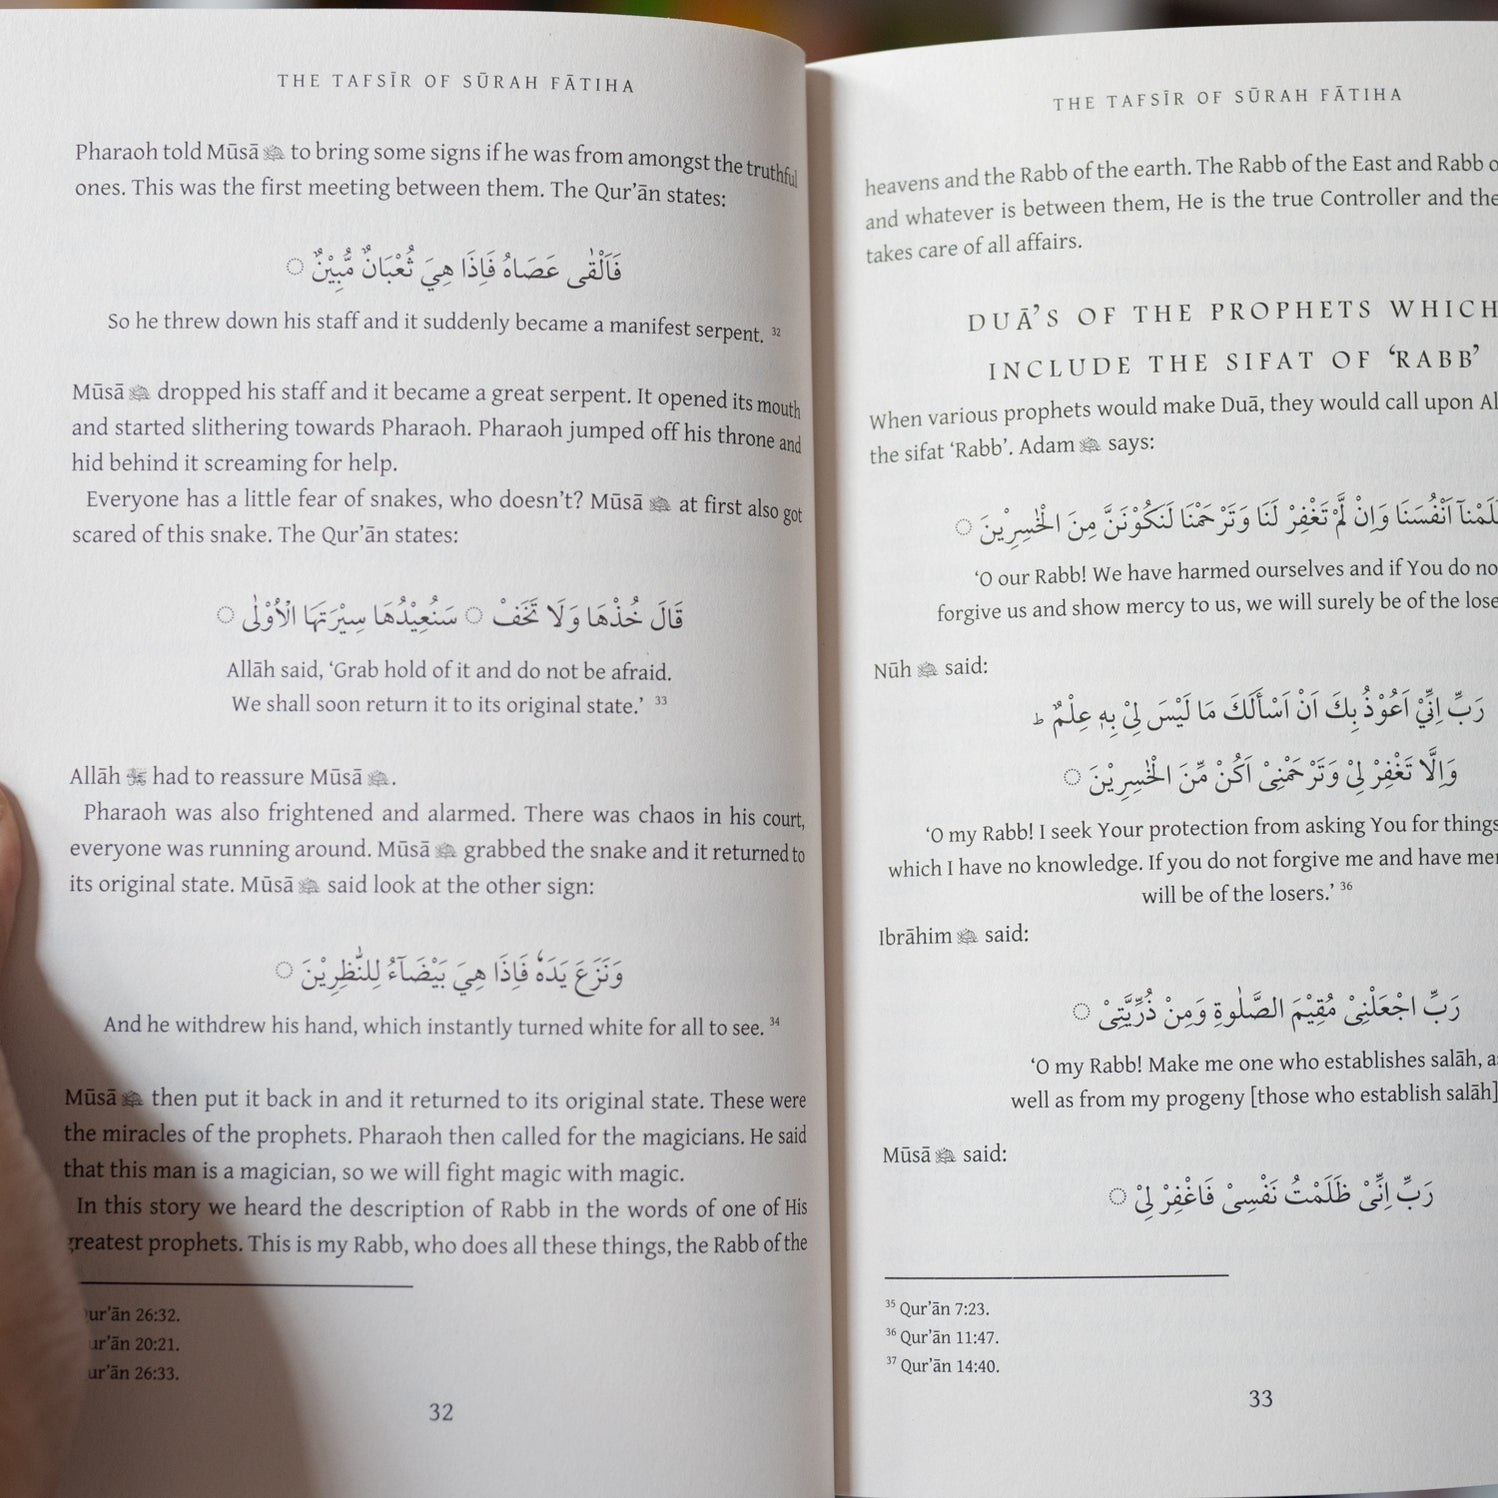 THE TAFSĪR OF SŪRAH FĀTIHA
Pharaoh told Mūsā ؑ to bring some signs if he was from amongst the truthful
ones. This was the first meeting between them. The Qur’ān states:
فَاَلْقٰى عَصَاهُ فَاِذَا هِيَ ثُعْبَانٌ مُّبِيْنٌ ۝
So he threw down his staff and it suddenly became a manifest serpent. 32
Mūsā ؑ dropped his staff and it became a great serpent. It opened its mouth
and started slithering towards Pharaoh. Pharaoh jumped off his throne and
hid behind it screaming for help.
Everyone has a little fear of snakes, who doesn’t? Mūsā ؑ at first also got
scared of this snake. The Qur’ān states:
قَالَ خُذْهَا وَلَا تَخَفْ ۝ سَنُعِيْدُهَا سِيْرَتَهَا الْاُوْلٰى ۝
Allāh said, ‘Grab hold of it and do not be afraid.
We shall soon return it to its original state.’ 33
Allāh ﷻ had to reassure Mūsā ؑ.
Pharaoh was also frightened and alarmed. There was chaos in his court,
everyone was running around. Mūsā ؑ grabbed the snake and it returned to
its original state. Mūsā ؑ said look at the other sign:
وَنَزَعَ يَدَهٗ فَاِذَا هِيَ بَيْضَآءُ لِلنّٰظِرِيْنَ ۝
And he withdrew his hand, which instantly turned white for all to see. 34
Mūsā ؑ then put it back in and it returned to its original state. These were
the miracles of the prophets. Pharaoh then called for the magicians. He said
that this man is a magician, so we will fight magic with magic.
In this story we heard the description of Rabb in the words of one of His
greatest prophets. This is my Rabb, who does all these things, the Rabb of the
ur’ān 26:32.
ur’ān 20:21.
ur’ān 26:33.
32
THE TAFSĪR OF SŪRAH FĀTIHA
heavens and the Rabb of the earth. The Rabb of the East and Rabb o
and whatever is between them, He is the true Controller and the
takes care of all affairs.
DUĀ’S OF THE PROPHETS WHICH
INCLUDE THE SIFAT OF ‘RABB’
When various prophets would make Duā, they would call upon Al
the sifat ‘Rabb’. Adam ؑ says:
لَمْنَآ اَنْفُسَنَا وَاِنْ لَّمْ تَغْفِرْ لَنَا وَتَرْحَمْنَا لَنَكُوْنَنَّ مِنَ الْخٰسِرِيْنَ ۝
‘O our Rabb! We have harmed ourselves and if You do no
forgive us and show mercy to us, we will surely be of the lose
Nūh ؑ said:
رَبِّ اِنِّيْ اَعُوْذُ بِكَ اَنْ اَسْأَلَكَ مَا لَيْسَ لِيْ بِهٖ عِلْمٌ ؕ
وَاِلَّا تَغْفِرْ لِيْ وَتَرْحَمْنِيْ اَكُنْ مِّنَ الْخٰسِرِيْنَ ۝
‘O my Rabb! I seek Your protection from asking You for things
which I have no knowledge. If you do not forgive me and have mer
will be of the losers.’ 36
Ibrāhim ؑ said:
رَبِّ اجْعَلْنِيْ مُقِيْمَ الصَّلٰوةِ وَمِنْ ذُرِّيَّتِيْ ۝
‘O my Rabb! Make me one who establishes salāh, a
well as from my progeny [those who establish salāh]
Mūsā ؑ said:
رَبِّ اِنِّيْ ظَلَمْتُ نَفْسِيْ فَاغْفِرْ لِيْ ۝
35 Qur’ān 7:23.
36 Qur’ān 11:47.
37 Qur’ān 14:40.
33